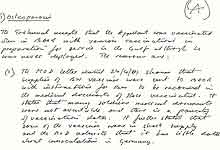 A
1) Osteoporosis
The Tribunal accepts that the Appellant was vaccinated
then in BAOR with various vaccinations in
preparation for service in the Gulf although he
was never deployed. The reasons are:
(1) The MOD letter dated 24/ shows that
supplies of the vaccine were sent to BAOR
with instructions for them to be recorded in
the medical documents of those vaccinated. It
states that many soldiers medical documents
were not available and there is a
vaccination data. It further states that
some of the vaccine was in short supply
and the MOD admits that it has little
about inoculation in Germany.